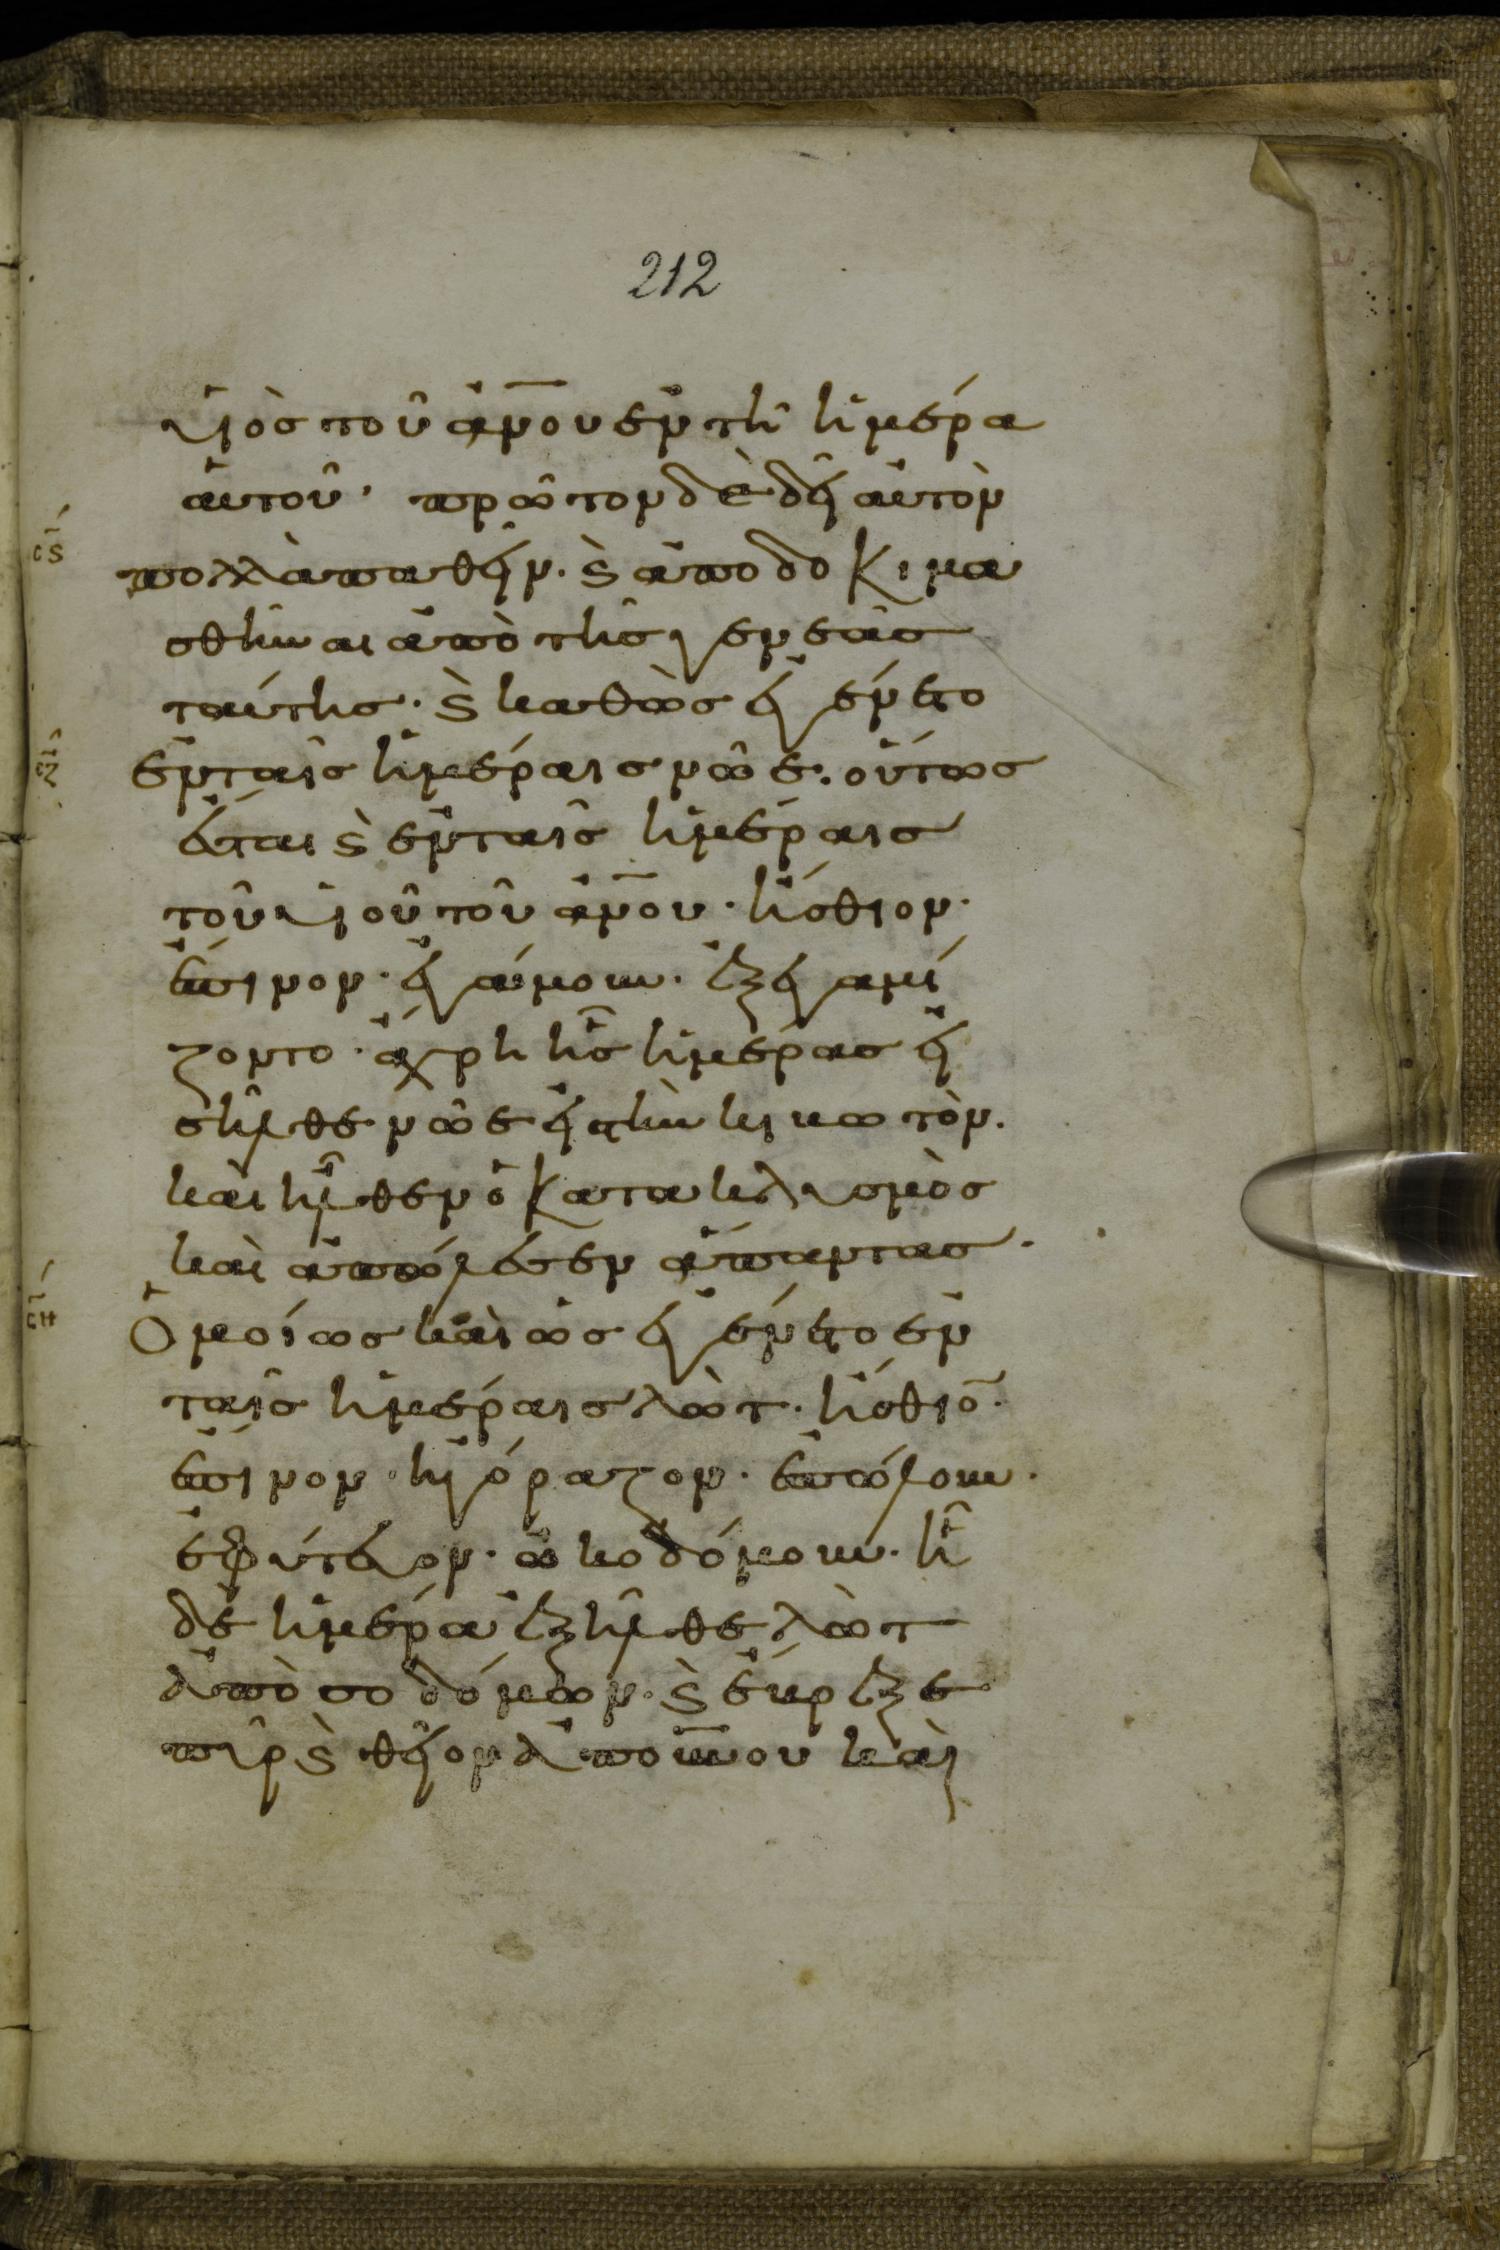 212
υἱὸς τοῦ ἀν̅ου ἐν τῆ ἡμέρα
αὐτοῦ· πρῶτον δὲ δεῖ αὐτὸν
πολλὰ παθεῖν. ϛ̀ ἀποδοκιμα
σθῆναι ἀπὸ τῆς γενεᾶς
ταύτης· ϛ̀ καθὼς ἐγένετο
ἐν ταῖς ἡμέραις νῶε. οὕτως
ἔσται ϛ̀ ἐν ταῖς ἡμέραις
τοῦ υἱοῦ τοῦ ἀν̅ου· ἤσθιον·
ἔπινον· ἐγάμουν· ἐξεγαμί
ζοντο· ἄχρη ἧς ἡμέρας εἰ
σῆλθε νῶε εἰς τὴν κιβωτὸν.
καὶ ἦλθεν ὁ κατακλυσμὸς
καὶ ἀπώλεσεν ἅπαντας·
Ὁμοίως καὶ ὡς ἐγένετο ἐν
ταῖς ἡμέραις λὼτ· ἤσθιο̅·
ἔπινον· ἠγόραζον· ἐπώλουν·
ἐφύτευον· ὠκοδόμουν· ἧ
δὲ ἡμέρα ἐξῆλθε λὼτ
ἀπὸ σοδόμων· ϛ̀ ἔβρεξε
πῦρ ϛ̀ θεῖον ἀπ' ουν̅ου καὶ